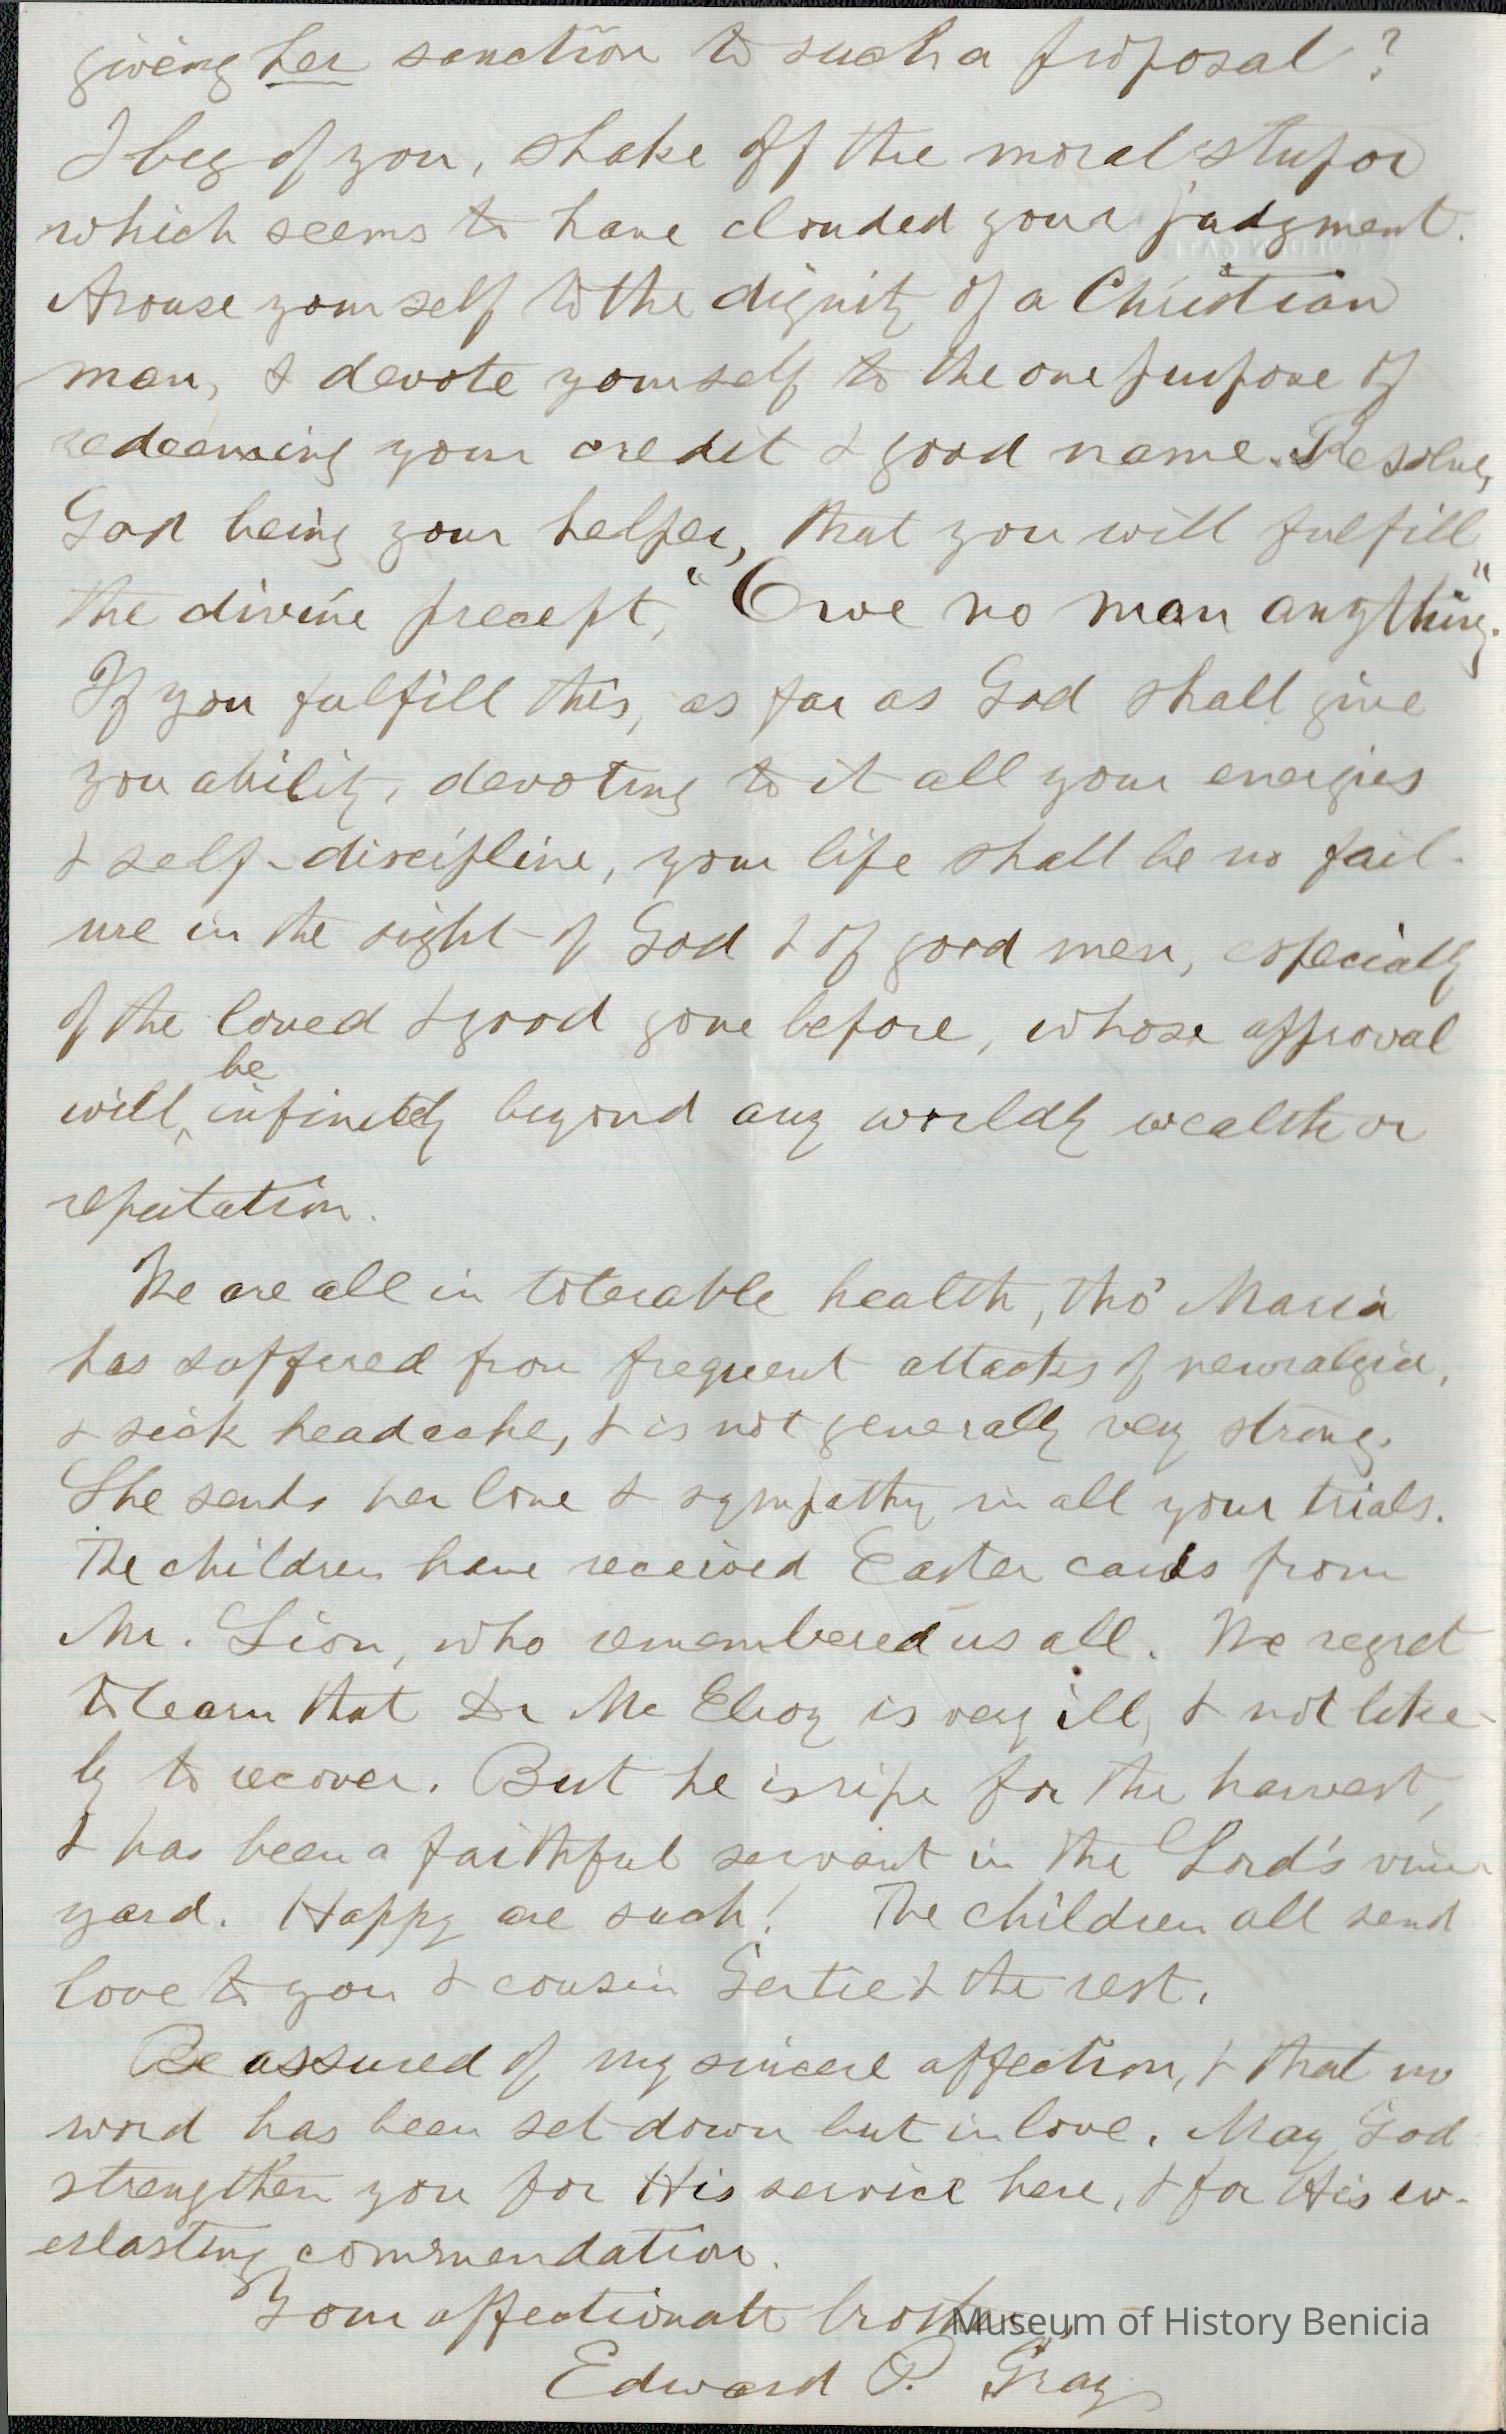 giving her sanction to such a proposal?
I beg of you, shake off the moral stupor
which seems to have clouded your judgment.
Arouse yourself to the dignity of a Christian
man, & devote yourself to the one purpose of
redeeming your credit & good name. Resolve,
God being your helper, that you will fulfill
the divine precept, "Owe no man anything."
If you fulfill this, as far as God shall give
you ability, devoting to it all your energies
& self-discipline, your life shall be no fail-
ure in the sight of God & of good men, especially
of the loved & good gone before, whose approval
be
will infinitely beyond any worldly wealth or
reputation.
We are all in tolerable health, tho' Maria
has suffered from frequent attacks of neuralgia,
& sick headache, & is not generally very strong.
She sends her love & sympathy in all your trials.
The children have received Easter cards from
Mr. Lion, who remembered us all. We regret
to learn that Dr McElroy is very ill, & not like-
ly to recover. But he is ripe for the harvest,
& has been a faithful servant in the Lord's vine-
yard. Happy are such! The children all send
love to you & cousin Gertie & the rest.
Be assured of my sincere affection, & that no
word has been set down but in love. May God
strengthen you for His service here, & for His ev-
erlasting commendation.
Your affectionate brother,
Edward P. Gray
Museum of History Benicia